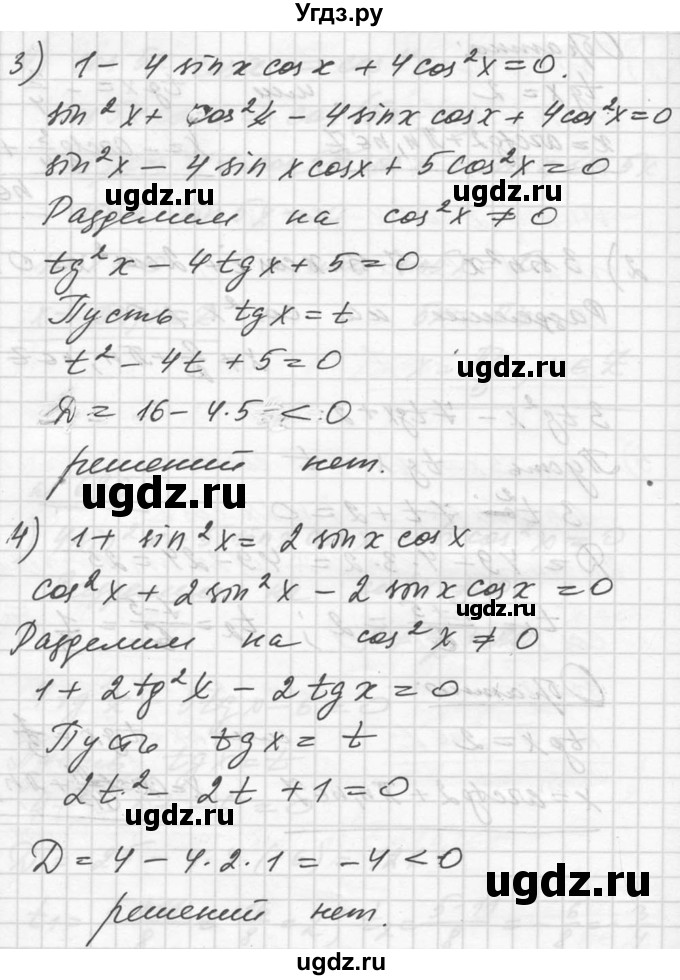 Угдз.ру
3) 1 - 4 sin x cos x + 4 cos²x = 0.
sin²x + cos²x - 4 sin x cos x + 4 cos²x = 0
sin²x - 4 sin x cos x + 5 cos²x = 0
ugdz.ru ugdz.ru
Разделим на cos²x ≠ 0
tg²x - 4 tg x + 5 = 0
Пусть tg x = t
t² - 4t + 5 = 0
ugdz.ru
D = 16 - 4·5 < 0
решений нет.
ugdz.ru
4) 1 + sin²x = 2 sin x cos x
cos²x + 2 sin²x - 2 sin x cos x = 0
ugdz.ru
Разделим на cos²x ≠ 0
1 + 2 tg²x - 2 tg x = 0
Пусть tg x = t
2t² - 2t + 1 = 0
ugdz.ru
D = 4 - 4·2·1 = -4 < 0
ugdz.ru
решений нет.
ugdz.ru